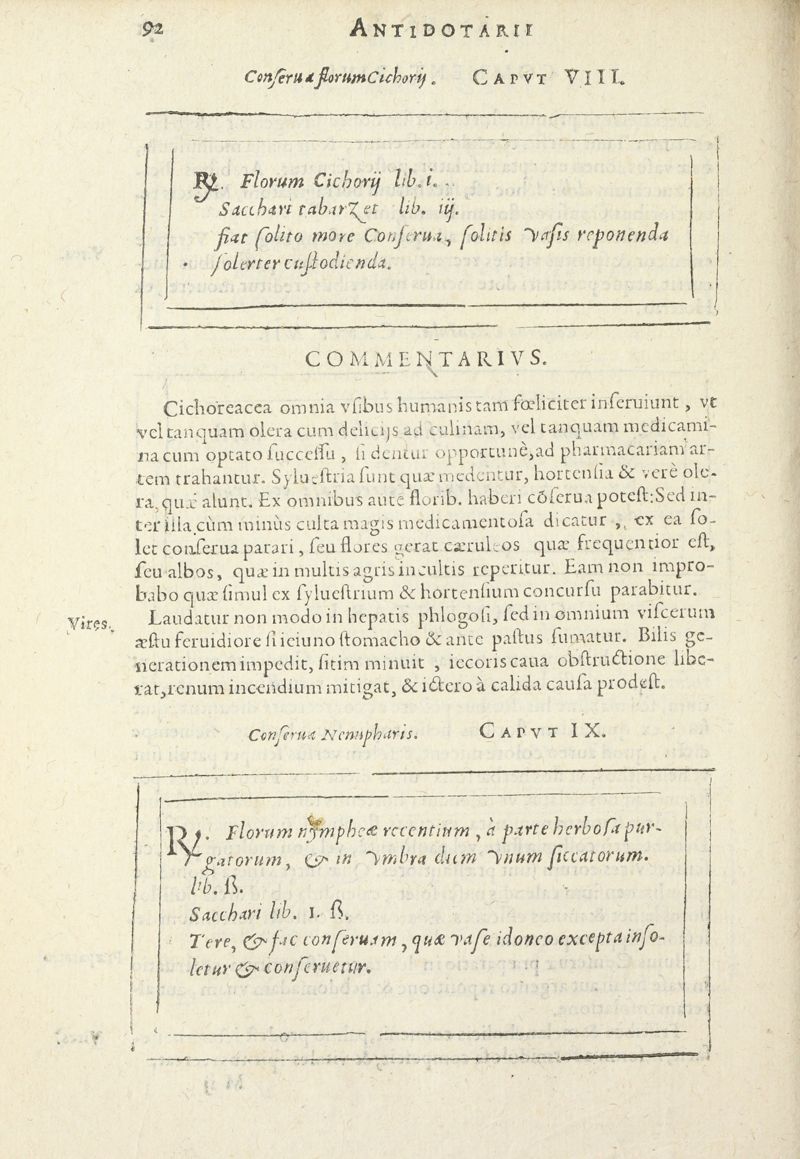 92 ANTIDOTARII
Conseruæ florum Cichorij. CAPVT VIII.
℞. Florum Cichorij lib. i.
Sacchari tabarzet lib. iij.
fiat solito more Conserua, solitis vasis reponenda
solerter custodienda.
COMMENTARIVS.
Cichoreacea omnia vsibus humanis tam fœliciter inseruiunt, vt
vel tanquam olera cum delicijs ad culinam, vel tanquam medicami-
na cum optato successu, si dentur opportunè, ad pharmacariam ar-
tem trahantur. Syluestria sunt quæ medentur, hortensia & verè ole-
ra, quæ alunt. Ex omnibus autē florib. haberi cōserua potest: Sed in-
ter illa cùm minùs culta magis medicamentosa dicatur, ex ea so-
let conserua parari, seu flores gerat cæruleos quæ frequentior est,
seu albos, quæ in multis agris incultis reperitur. Eam non impro-
babo quæ simul ex syluestrium & hortensium concursu parabitur.
Vires. Laudatur non modo in hepatis phlogosi, sed in omnium viscerum
æstu feruidiore si iciuno stomacho & ante pastus sumatur. Bilis ge-
nerationem impedit, sitim minuit, iecoris caua obstructione libe-
rat, renum incendium mitigat, & ictero à calida causa prodest.
Conserua Nenupharis. CAPVT IX.
℞. Florum nymphææ recentium, à parte herbosa pur-
gatorum, & in vmbra dum vnum siccatorum.
lib. ß.
Sacchari lib. I. ß.
Tere, & fac conseruam, quæ vase idoneo excepta inso-
letur & conseruetur.